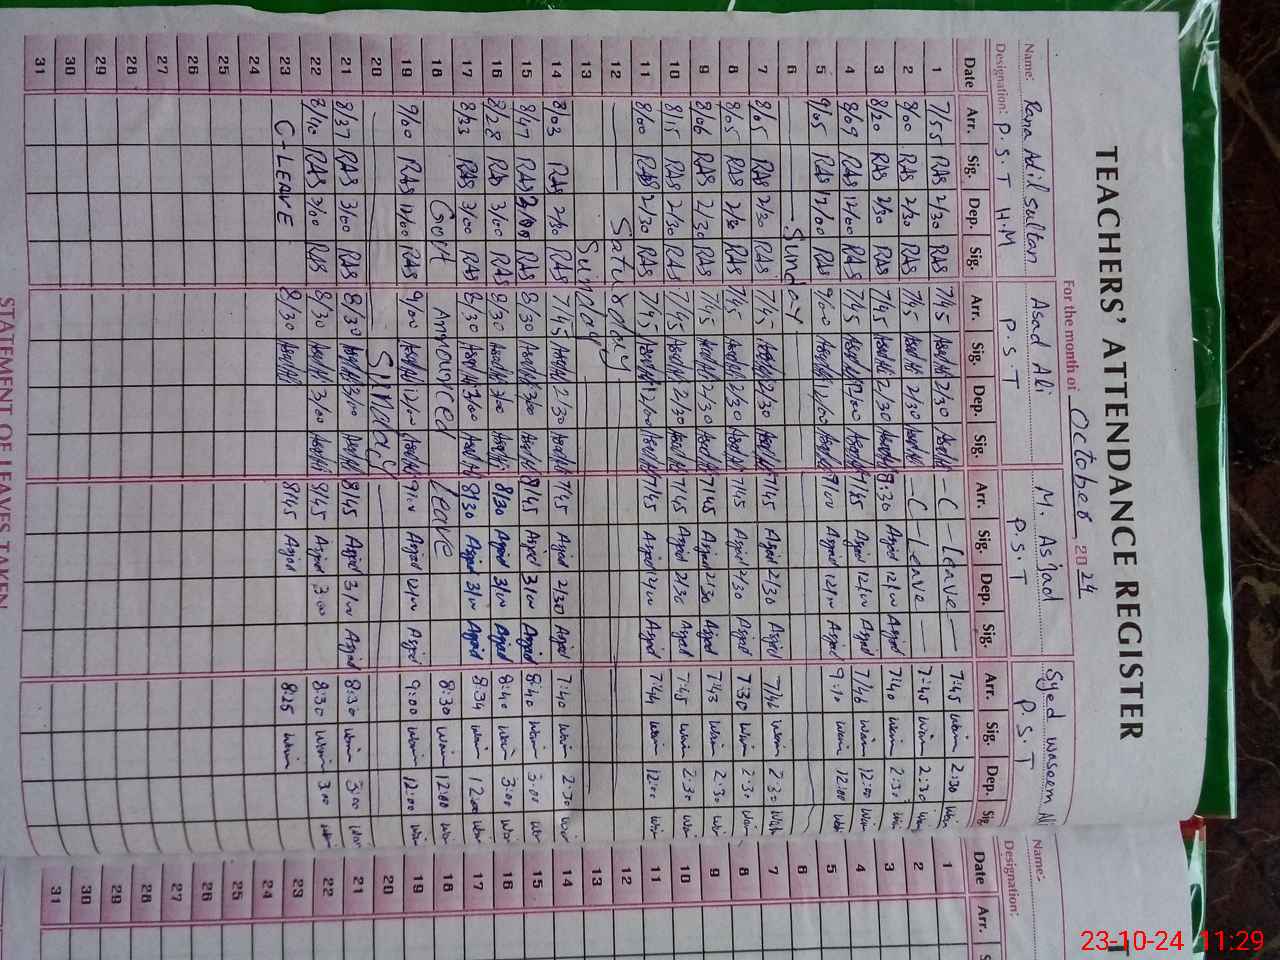 TEACHERS' ATTENDANCE REGISTER
For the month of October 2024
Name: Rana Adil Sultan Asad Ali M. Asjad Syed Waseem Ali
Designation: P.S.T H.M P.S.T P.S.T P.S.T
Date Arr. Sig. Dep. Sig. Arr. Sig. Dep. Sig. Arr. Sig. Dep. Sig. Arr. Sig. Dep. Sig
1 7/55 RAS 2/30 RAS 7/45 Asad Ali 2/30 Asad Ali - C - Leave - 7:45 Wasim 2:30
2 8/00 RAS 2/30 RAS 7/45 Asad Ali 2/30 Asad Ali - C - Leave - 7:45 Wasim 2:30
3 8/20 RAS 2/30 RAS 7/45 Asad Ali 2/30 Asad Ali 8:30 Asjad 12/00 Asjad 7:40 Wasim 2:30
4 8/09 RAS 12/00 RAS 7/45 Asad Ali 12/00 Asad Ali 7/45 Asjad 12/00 Asjad 7/46 Wasim 12:00
5 9/05 RAS 12/00 RAS 9/00 Asad Ali 12/00 Asad Ali 9/00 Asjad 12/00 Asjad 9:10 Wasim 12:00
6 Sunday
7 8/05 RAS 2/30 RAS 7/45 Asad Ali 2/30 Asad Ali 7/45 Asjad 2/30 Asjad 7/46 Wasim 2:30
8 8/05 RAS 2/30 RAS 7/45 Asad Ali 2/30 Asad Ali 7/45 Asjad 2/30 Asjad 7:30 Wasim 2:30
9 8/06 RAS 2/30 RAS 7/45 Asad Ali 2/30 Asad Ali 7/45 Asjad 2/30 Asjad 7:43 Wasim 2:30
10 8/15 RAS 2/30 RAS 7/45 Asad Ali 2/30 Asad Ali 7/45 Asjad 2/30 Asjad 7:45 Wasim 2:30
11 8/00 RAS 2/30 RAS 7/45 Asad Ali 12/00 Asad Ali 7/45 Asjad 12/00 Asjad 7:44 Wasim 12:00
12 Saturday
13 Sunday
14 8/03 RAS 2/30 RAS 7/45 Asad Ali 2/30 Asad Ali 7/45 Asjad 2/30 Asjad 7:40 Wasim 2:30
15 8/47 RAS 3/00 RAS 8/30 Asad Ali 3/00 Asad Ali 8/45 Asjad 3/00 Asjad 8:40 Wasim 3:00
16 8/28 RAS 3/00 RAS 8/30 Asad Ali 3/00 Asad Ali 8/30 Asjad 3/00 Asjad 8:40 Wasim 3:00
17 8/33 RAS 3/00 RAS 8/30 Asad Ali 3/00 Asad Ali 8/30 Asjad 3/00 Asjad 8:34 Wasim 12:00
18 Govt Announced Leave 8:30 Wasim 12:00
19 9/00 RAS 12/00 RAS 9/00 Asad Ali 12/00 Asad Ali 9/00 Asjad 12/00 Asjad 9:00 Wasim 12:00
20 Sunday
21 8/37 RAS 3/00 RAS 8/30 Asad Ali 3/00 Asad Ali 8/45 Asjad 3/00 Asjad 8:30 Wasim 3:00
22 8/40 RAS 3/00 RAS 8/30 Asad Ali 3/00 Asad Ali 8/45 Asjad 3:00 8:30 Wasim 3:00
23 C-LEAVE 8/30 Asad Ali 8/45 Asjad 8:25 Wasim
24
25
26
27
28
29
30
31
STATEMENT OF LEAVES TAKEN
Name:
Designation:
Date Arr.
1
2
3
4
5
6
7
8
9
10
11
12
13
14
15
16
17
18
19
20
21
22
23
24
25
26
27
28
29
30
31
23-10-24 11:29